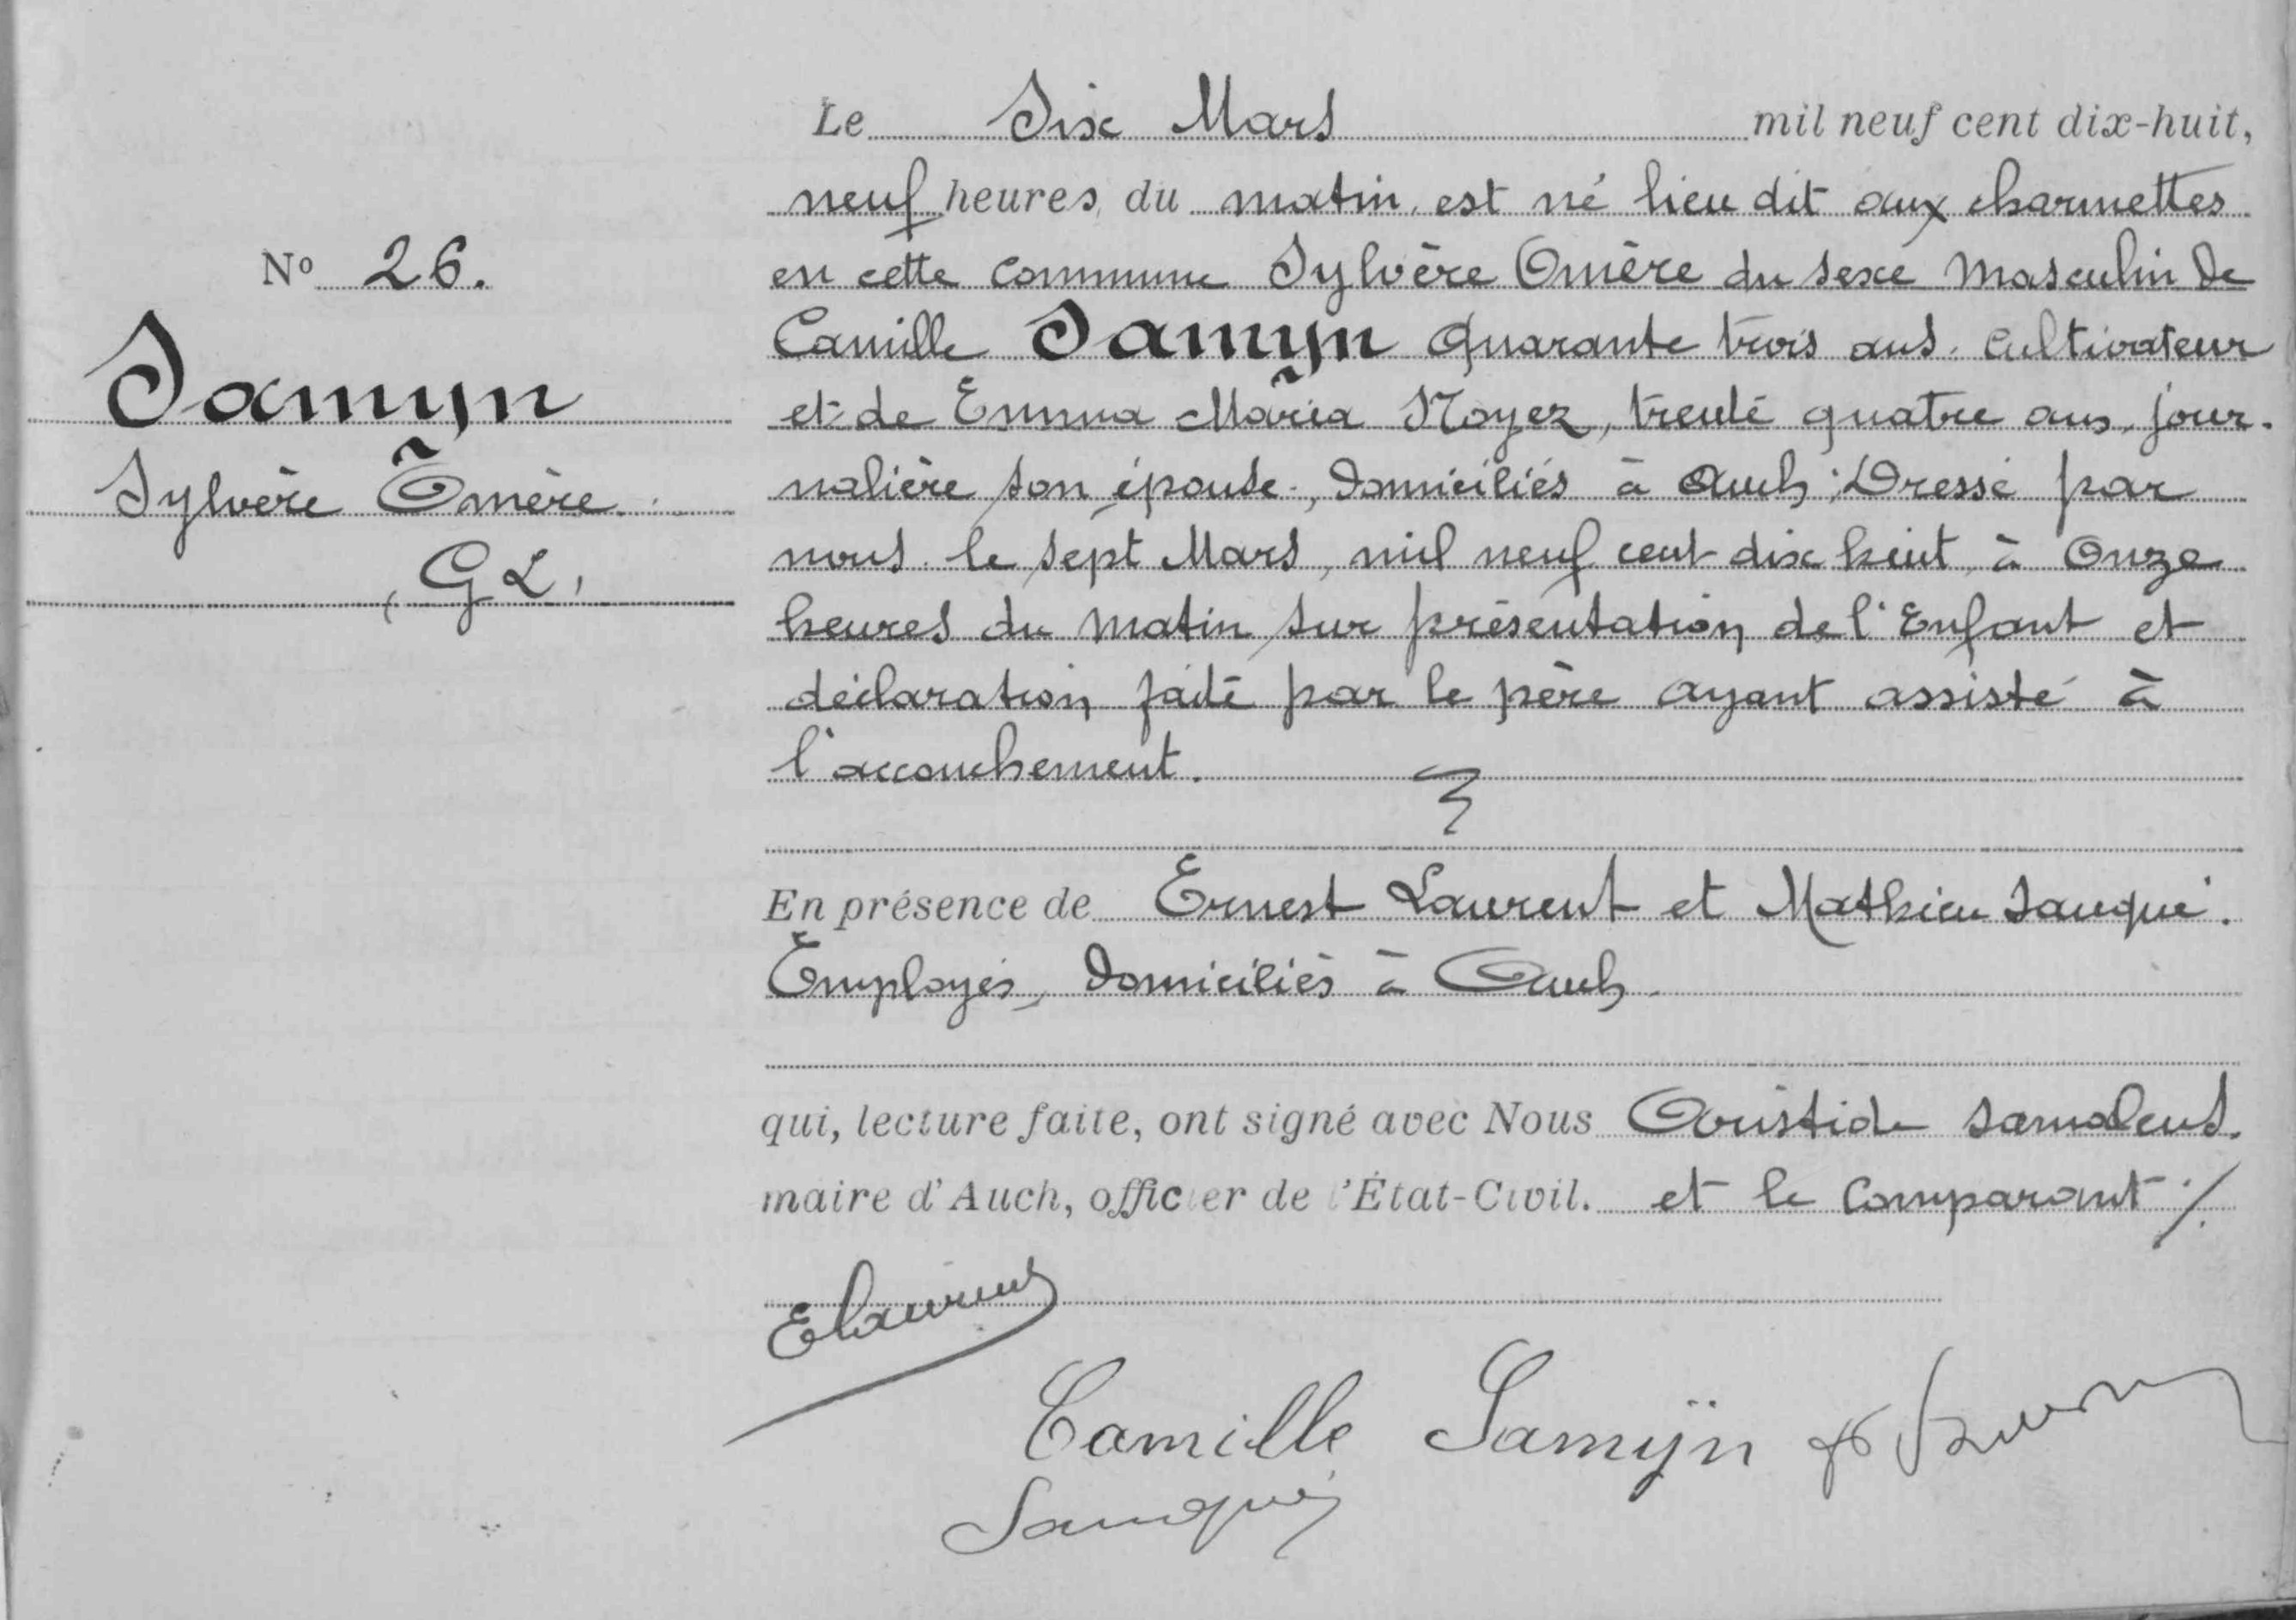 N° 26.
Samyn
Sylvère Omère
G L
Le Six Mars mil neuf cent dix-huit,
neuf heures du matin, est né lieu dit aux charmettes
en cette commune Sylvère Omère du sexe masculin de
Camille Samyn quarante trois ans, cultivateur
et de Emma Maria Noyez, trente quatre ans, jour-
nalière son épouse, domiciliés à Auch ; Dressé par
nous le sept Mars, mil neuf cent dix huit, à Onze
heures du matin sur présentation de l'Enfant et
déclaration faite par le père ayant assisté à
l'accouchement.
En présence de Ernest Laurent et Mathieu Sauqué.
Employés, domiciliés à Auch.
qui, lecture faite, ont signé avec Nous Aristide Samalens.
maire d'Auch, officier de l'État-Civil. et le Comparant ./.
E Laurent
Camille Samÿn
Sauqué